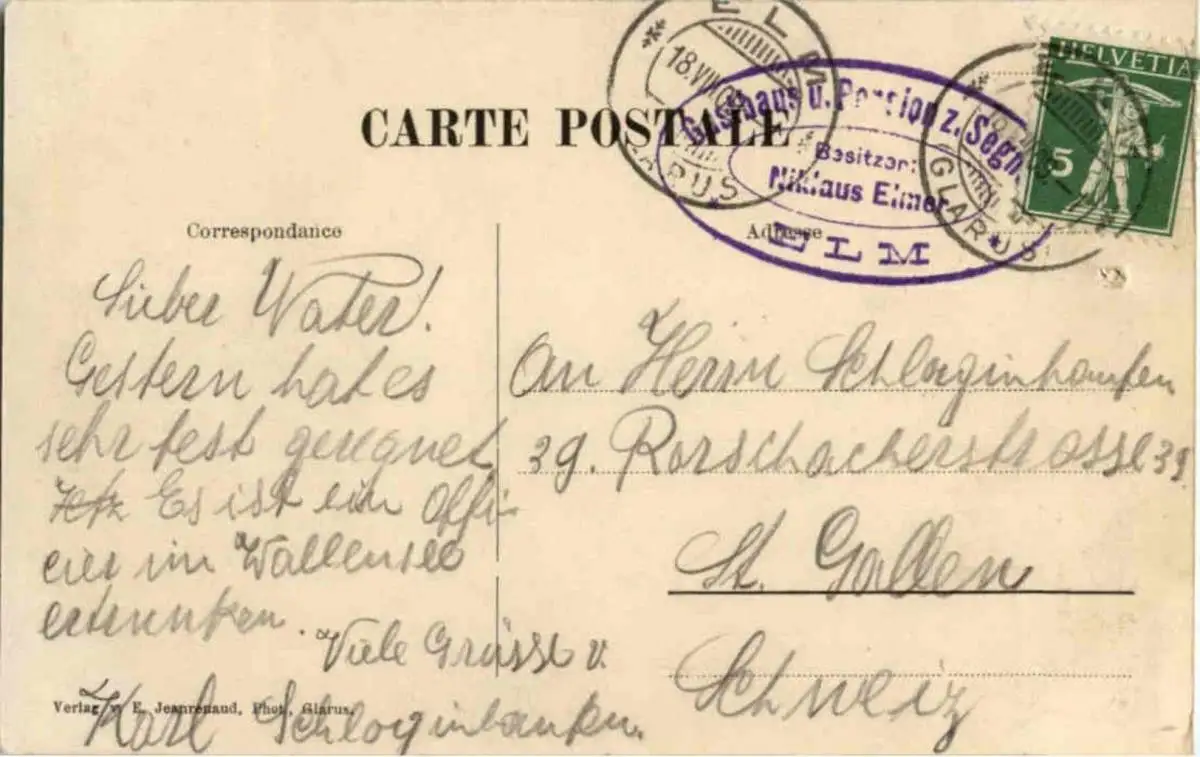 ELM
18.VIII.09
GLARUS
HELVETIA
5
CARTE POSTALE
Gasthaus u. Pension z. Segn
Besitzer:
Niklaus Elmer
ELM
GLARUS
Correspondance
Adresse
Lieber Vater!
Gestern hat es
sehr fest geregnet
Es ist ein Offi-
cier im Wallensee
ertrunken.
Viele Grüsse v.
Karl Schlaginhaufen.
An Herrn Schlaginhaufen
39. Rorschacherstrasse 39.
St. Gallen
Schweiz
Verlag v. E. Jeanrenaud, Phot., Glarus.